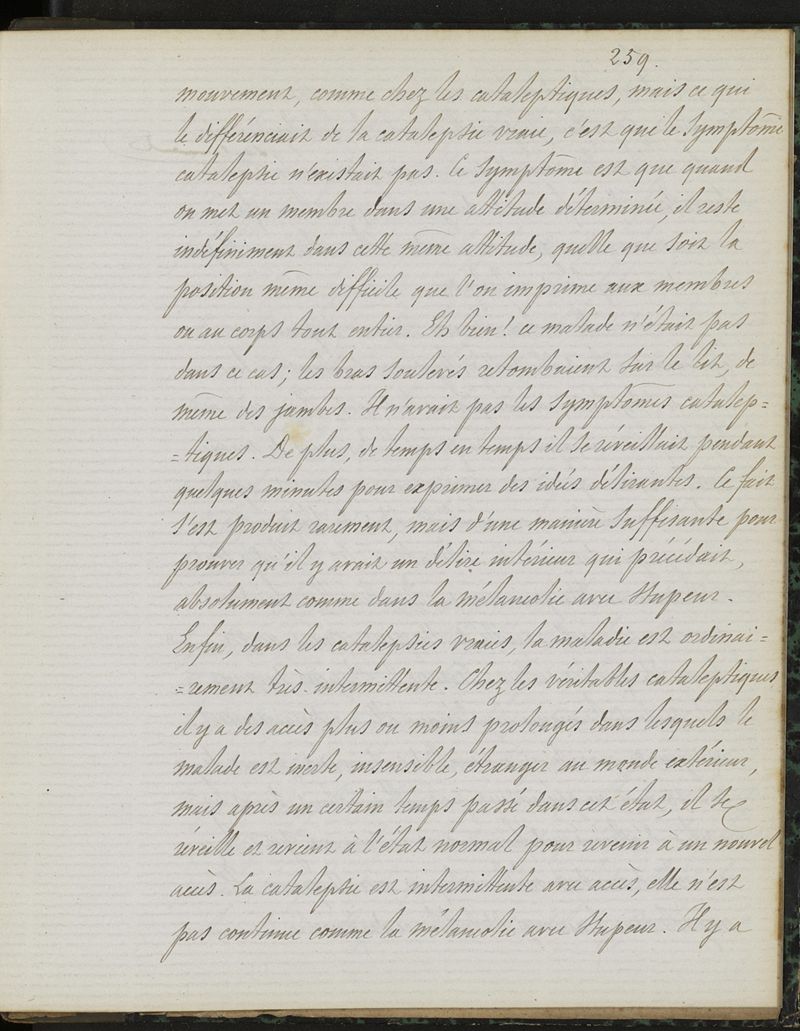 259.
mouvement, comme chez les cataleptiques, mais ce qui
le différenciait de la catalepsie vraie, c'est que le symptôme
catalepsie n'existait pas. Ce symptôme est que quand
on met un membre dans une attitude déterminée, il reste
indéfiniment dans cette même attitude, quelle que soit la
position même difficile que l'on imprime aux membres
ou au corps tout entier. Eh bien! ce malade n'était pas
dans ce cas; les bras soulevés retombaient sur le lit, de
même des jambes. Il n'avait pas les symptômes catalep=
=tiques. De plus, de temps en temps il se réveillait pendant
quelques minutes pour exprimer des idées délirantes. Ce fait
s'est produit rarement, mais d'une manière suffisante pour
prouver qu'il y avait un délire intérieur qui précédait,
absolument comme dans la mélancolie avec stupeur.
Enfin, dans les catalepsies vraies, la maladie est ordinai=
=rement très-intermittente. Chez les véritables cataleptiques
il y a des accès plus ou moins prolongés dans lesquels le
malade est inerte, insensible, étranger au monde extérieur,
mais après un certain temps passé dans cet état, il se
réveille et revient à l'état normal pour revenir à un nouvel
accès. La catalepsie est intermittente avec accès, elle n'est
pas continue comme la mélancolie avec stupeur. Il y a